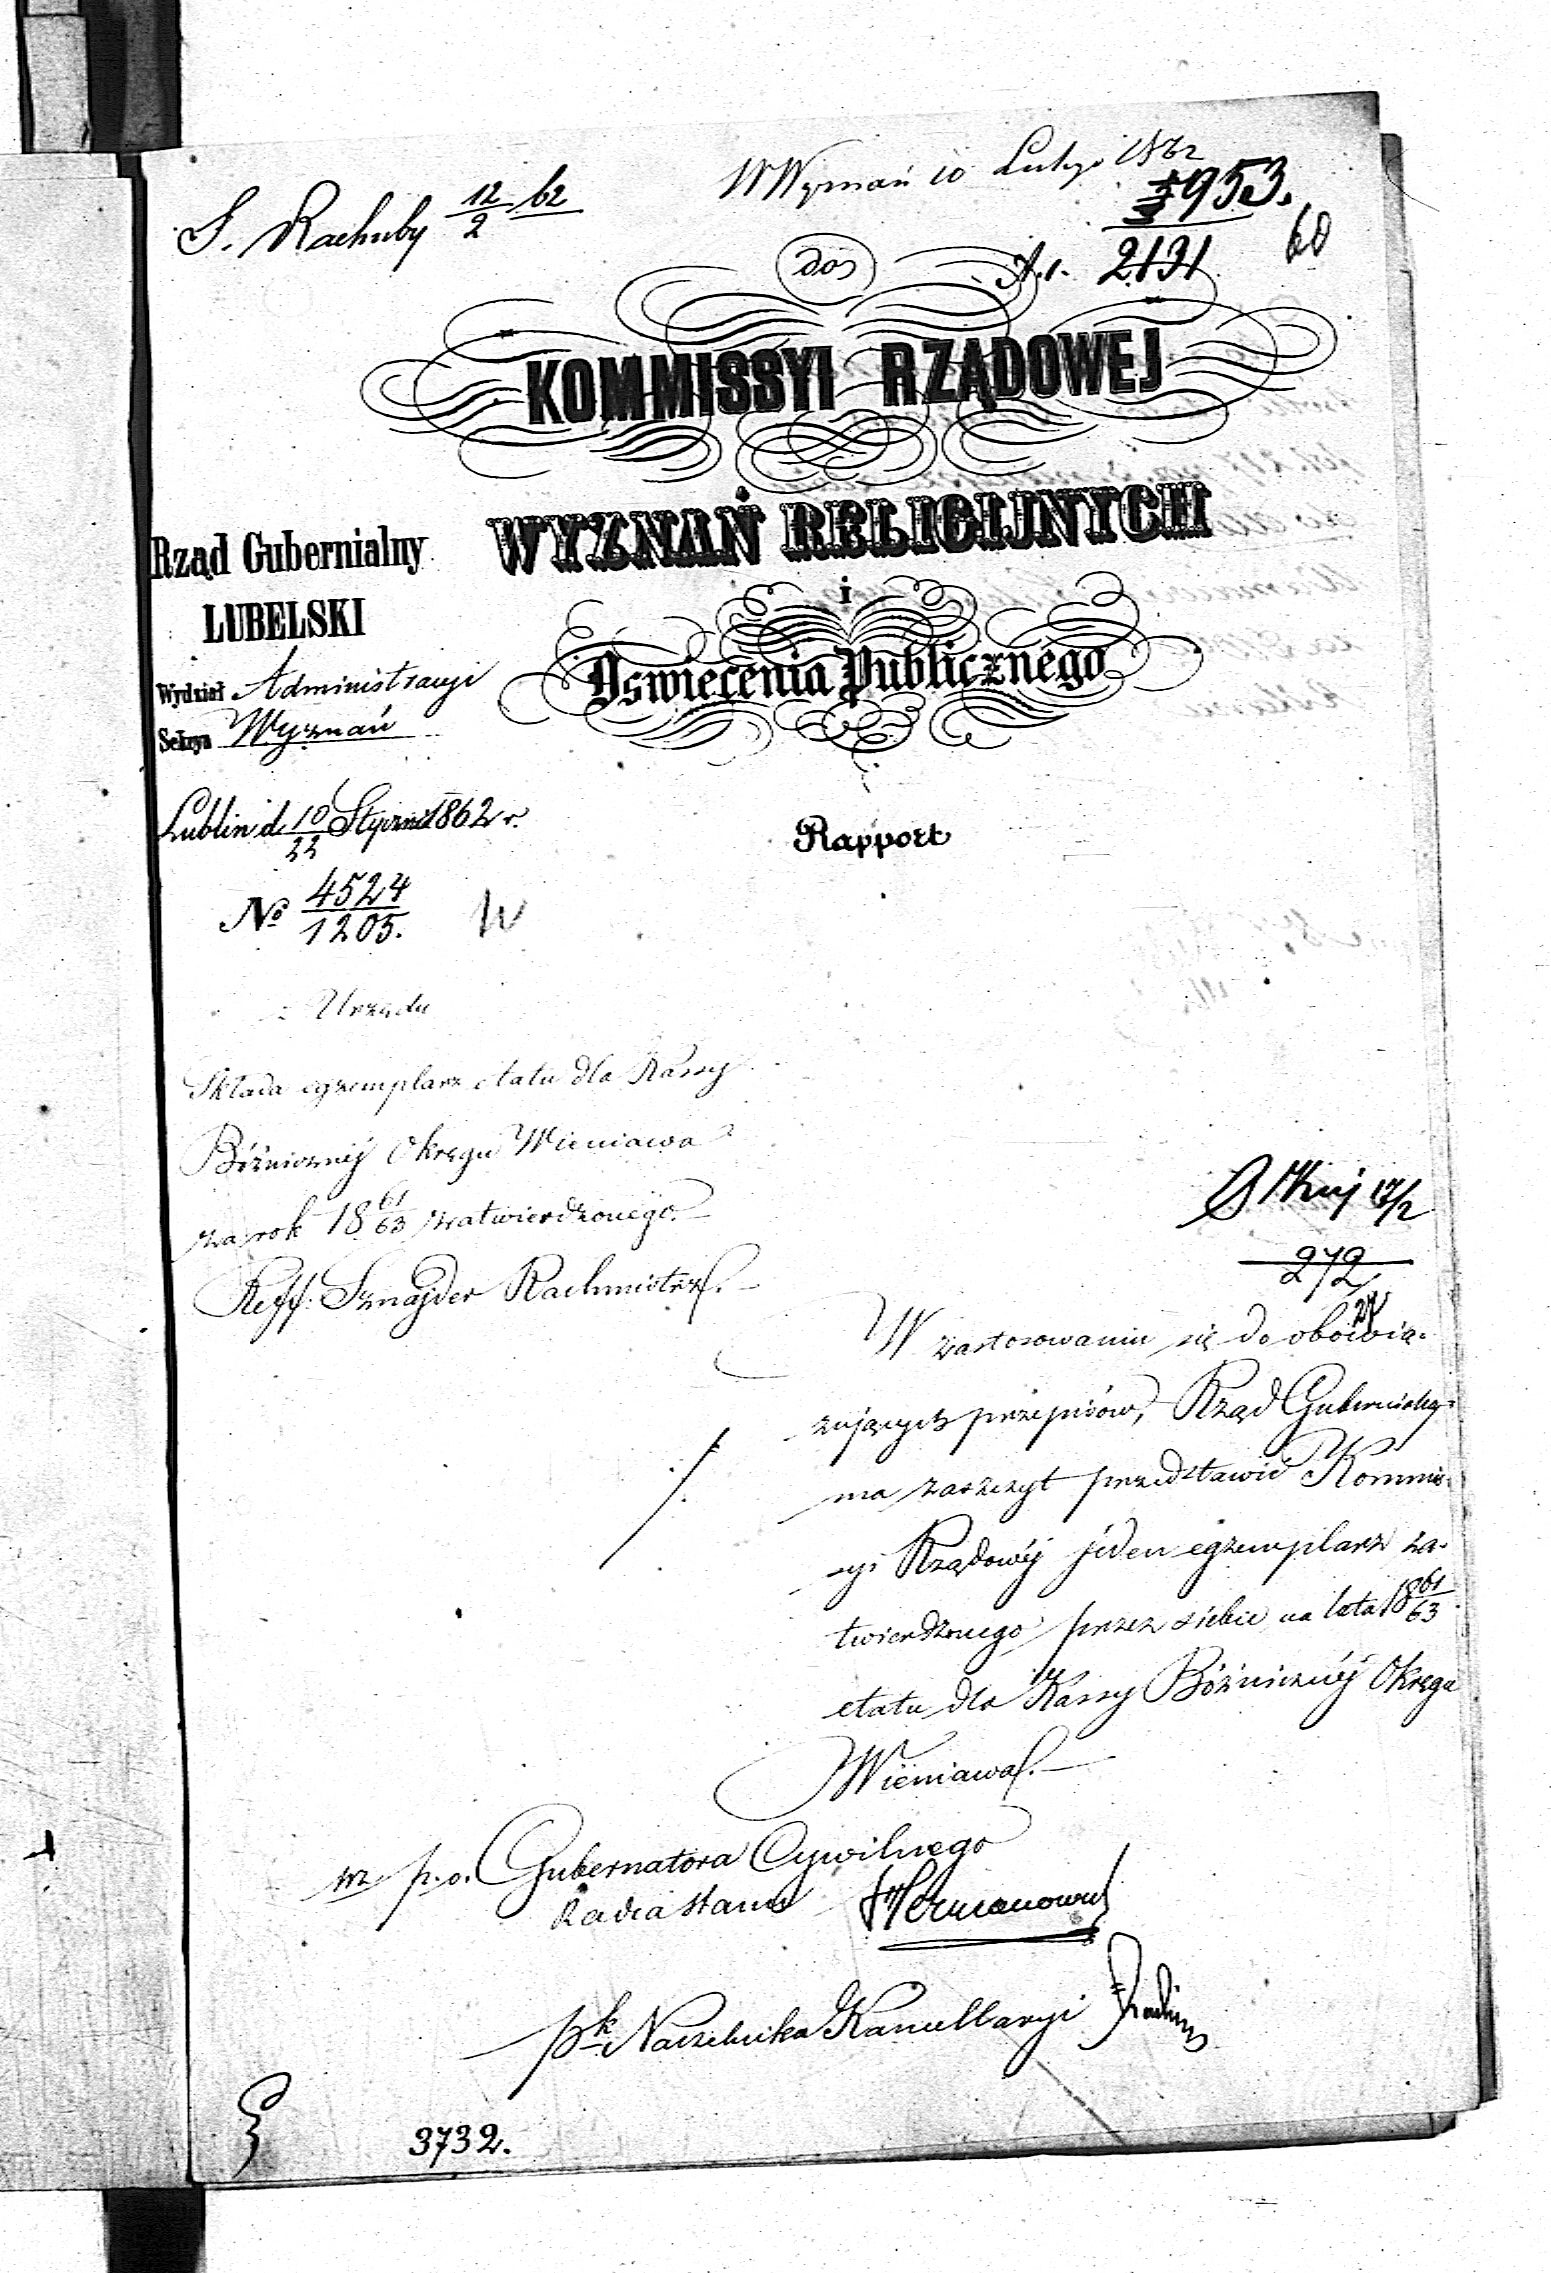 S. Rachuby 12/2 62
W Wyznań 10 Lutego 1862
953.
60
do
2131
KOMMISSYI RZĄDOWEJ
WYZNAŃ RELIGIJNYCH
i
Oświecenia Publicznego
Rząd Gubernialny
LUBELSKI
Wydział Administracyi
Sekcya Wyznań
Lublin d. 10/22 Stycznia 1862 r.
Rapport
№ 4524/1205.
W
z Urzędu
Składa egzemplarz etatu dla Kassy
Bóżnicznéj Okręgu Wieniawa
za rok 18 61/63 zatwierdzonego.
Reff. Sznajder Rachmistrz.
17/2
272
W zastosowaniu się do obowią-
zujących przepisów, Rząd Gubernialny
ma zaszczyt przedstawić Kommis-
syi Rządowéj jeden egzemplarz za-
twierdzonego przez siebie na lata 18 61/63
etatu dla Kassy Bóżnicznéj Okręgu
Wieniawa.
wz p. o. Gubernatora Cywilnego
Radca Stanu
Naczelnika Kancellaryi
3732.